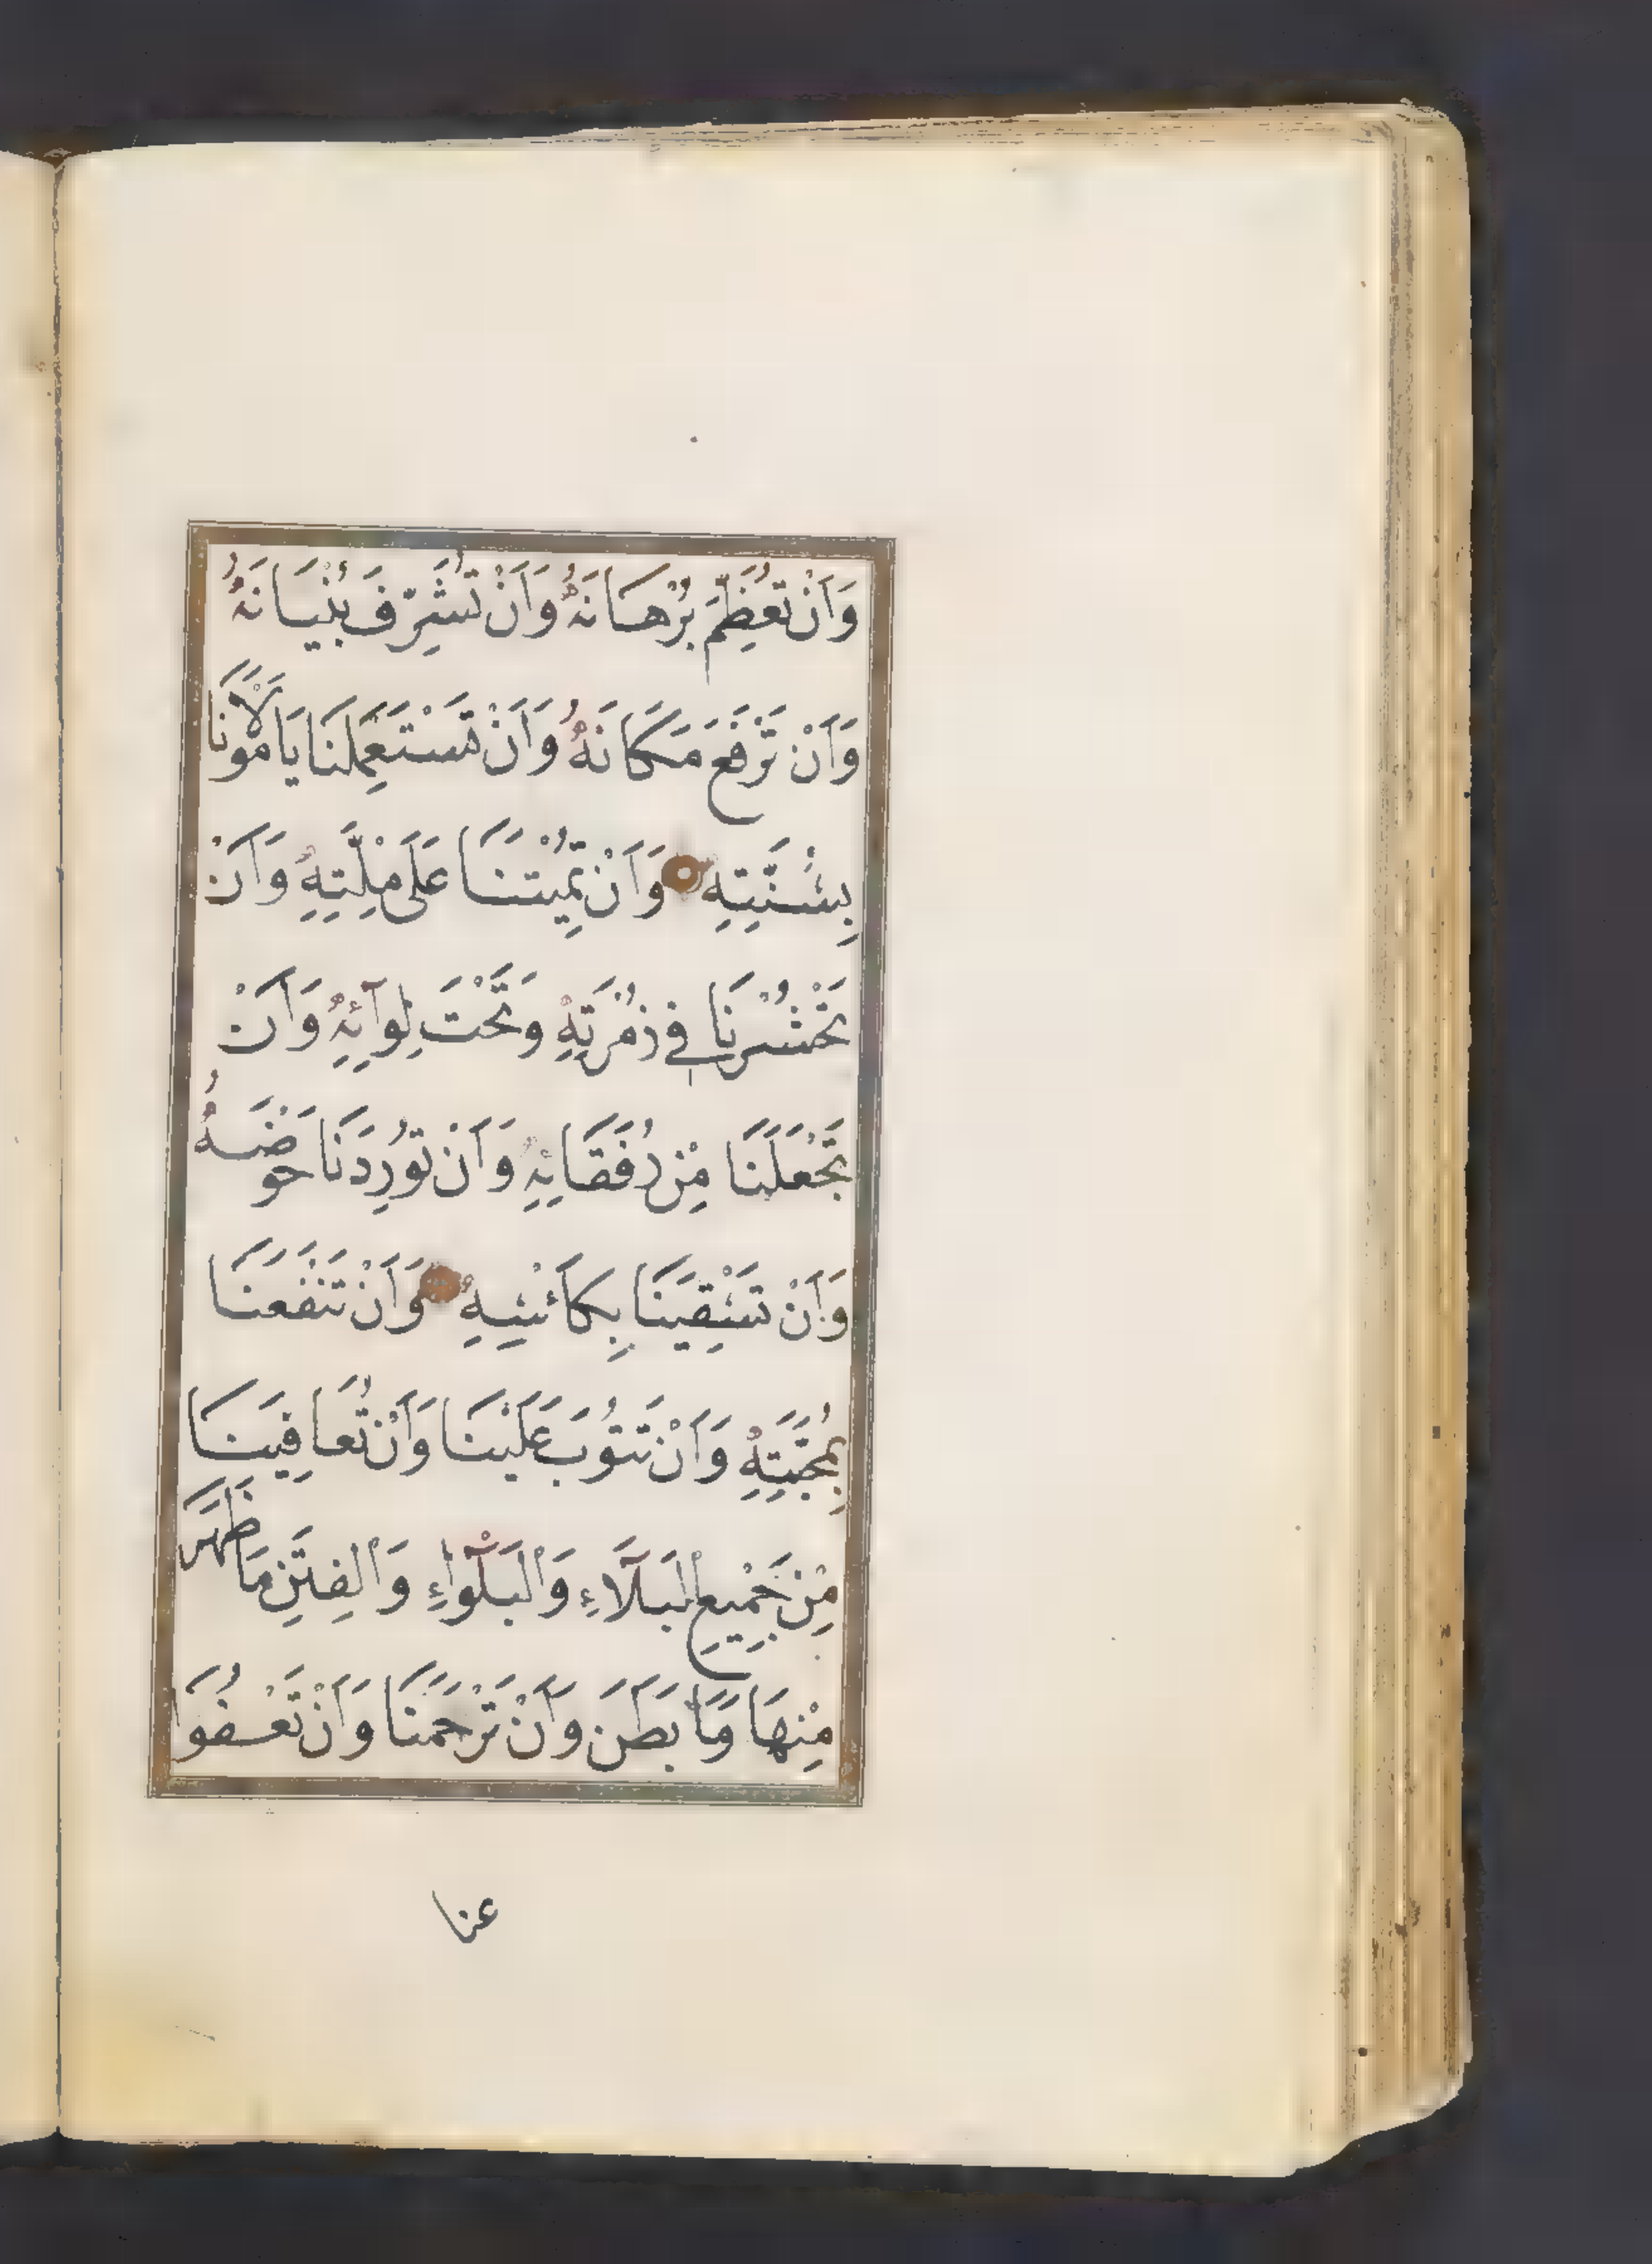 وَاَنْ تُعَظِّمَ بُرْهَانَهُ وَاَنْ تُشَرِّفَ بُنْيَانَهُ
وَاَنْ تَرْفَعَ مَكَانَهُ وَاَنْ تَسْتَعْمِلَنَا يَا مَوْلَانَا
بِسُنَّتِهِ وَاَنْ تُمِيْتَنَا عَلَى مِلَّتِهِ وَاَنْ
تَحْشُرَنَا فِي زُمْرَتِهِ وَتَحْتَ لِوَآئِهِ وَاَنْ
تَجْعَلَنَا مِنْ رُفَقَائِهِ وَاَنْ تُوْرِدَنَا حَوْضَهُ
وَاَنْ تَسْقِيَنَا بِكَأْسِهِ وَاَنْ تَنْفَعَنَا
بِمُحَبَّتِهِ وَاَنْ تَتُوْبَ عَلَيْنَا وَاَنْ تُعَافِيَنَا
مِنْ جَمِيْعِ الْبَلَآءِ وَالْبَلْوَاءِ وَالْفِتَنِ مَا ظَهَرَ
مِنْهَا وَمَا بَطَنَ وَاَنْ تَرْحَمَنَا وَاَنْ تَعْفُوَا
عنا